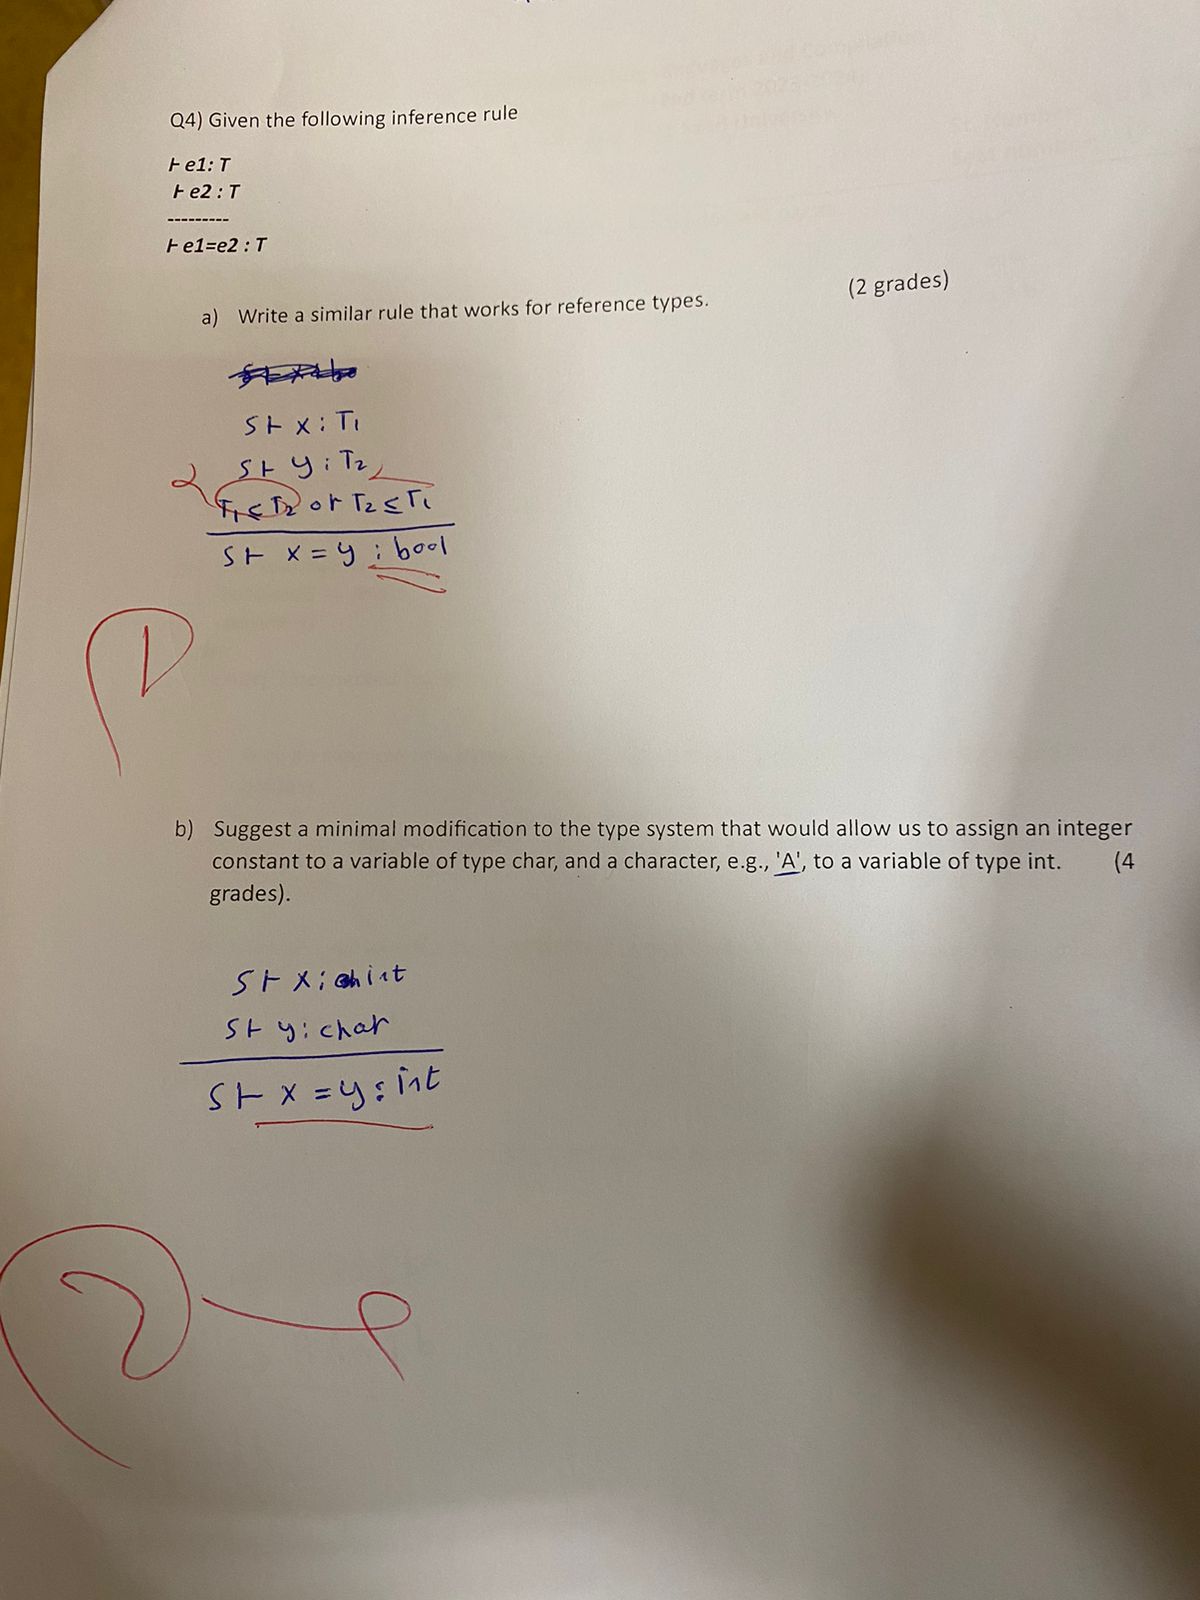 Q4) Given the following inference rule
⊢ e1: T
⊢ e2 : T
---------
⊢ e1=e2 : T
a) Write a similar rule that works for reference types. (2 grades)
S⊢ x : T1
S⊢ y : T2
T1 ≤ T2 or T2 ≤ T1
S⊢ x = y : bool
1
b) Suggest a minimal modification to the type system that would allow us to assign an integer
constant to a variable of type char, and a character, e.g., 'A', to a variable of type int. (4
grades).
S⊢ x : int
S⊢ y : char
S⊢ x = y : int
2